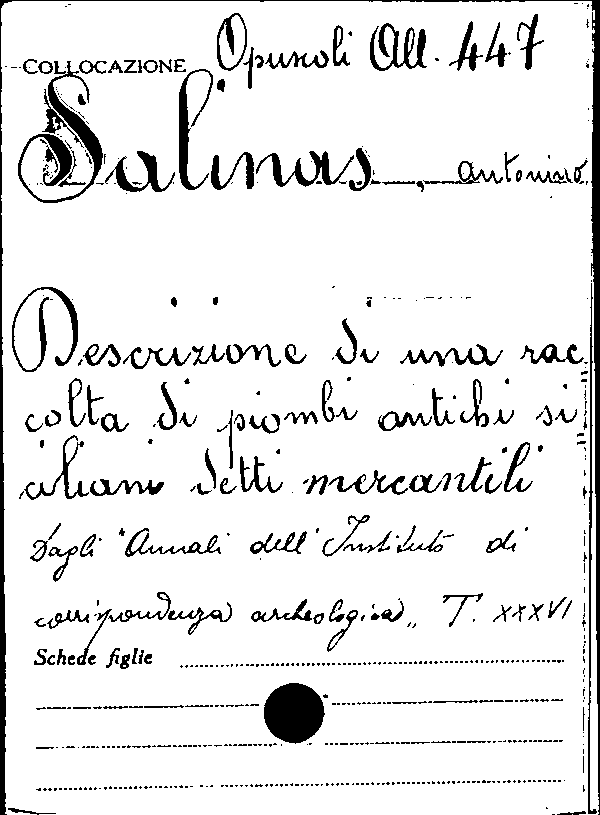 COLLOCAZIONE Opuscoli All. 447
Salinas, Antonino
Descrizione di una rac
colta di piombi antichi si
ciliani detti mercantili
Dagli "Annali dell'Instituto di
corrispondenza archeologica„ T. XXXVI
Schede figlie